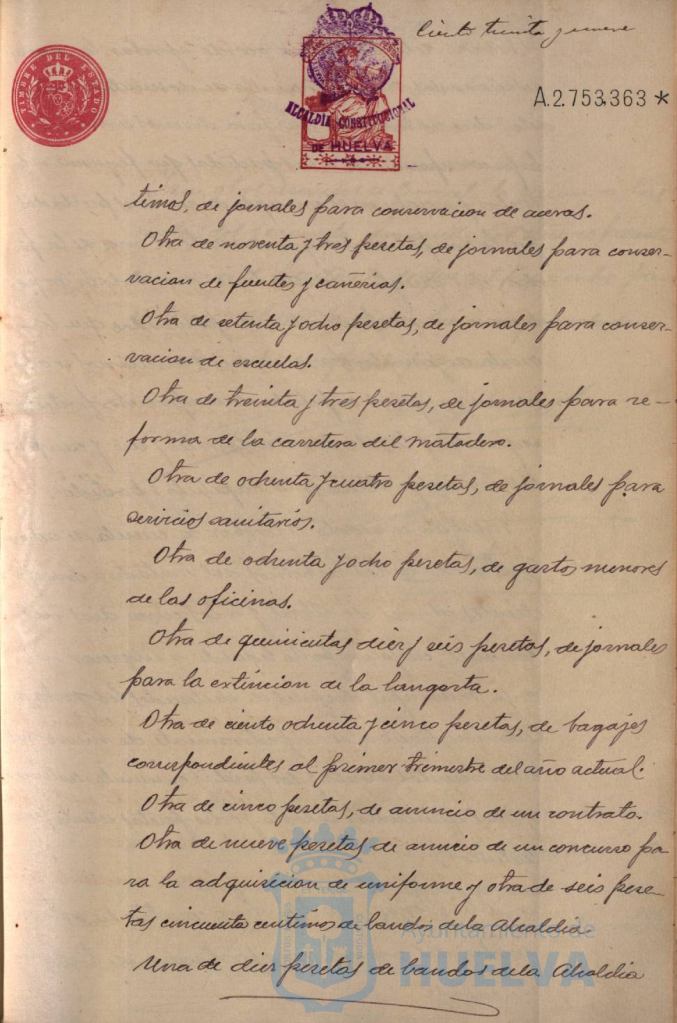 Ciento treinta y nueve
TIMBRE DEL ESTADO
A.2.753.363 *
ALCALDÍA CONSTITUCIONAL
DE HUELVA
timos, de jornales para conservacion de aceras.
Otra de noventa y tres pesetas, de jornales para conser-
vacion de fuentes y cañerias.
Otra de setenta y ocho pesetas, de jornales para conser-
vacion de escuelas.
Otra de treinta y tres pesetas, de jornales para re-
forma de la carretera del Matadero.
Otra de ochenta y cuatro pesetas, de jornales para
servicios sanitarios.
Otra de ochenta y ocho pesetas, de gastos menores
de las oficinas.
Otra de quinientas diez y seis pesetas, de jornales
para la extincion de la langosta.
Otra de ciento ochenta y cinco pesetas, de bagajes
correspondientes al primer trimestre del año actual.
Otra de cinco pesetas, de anuncio de un contrato.
Otra de nueve pesetas de anuncio de un concurso pa-
ra la adquisicion de uniforme y otra de seis pese-
tas cincuenta centimos de bandos de la Alcaldia
Una de diez pesetas de bandos de la Alcaldia
Ayuntamiento de
HUELVA